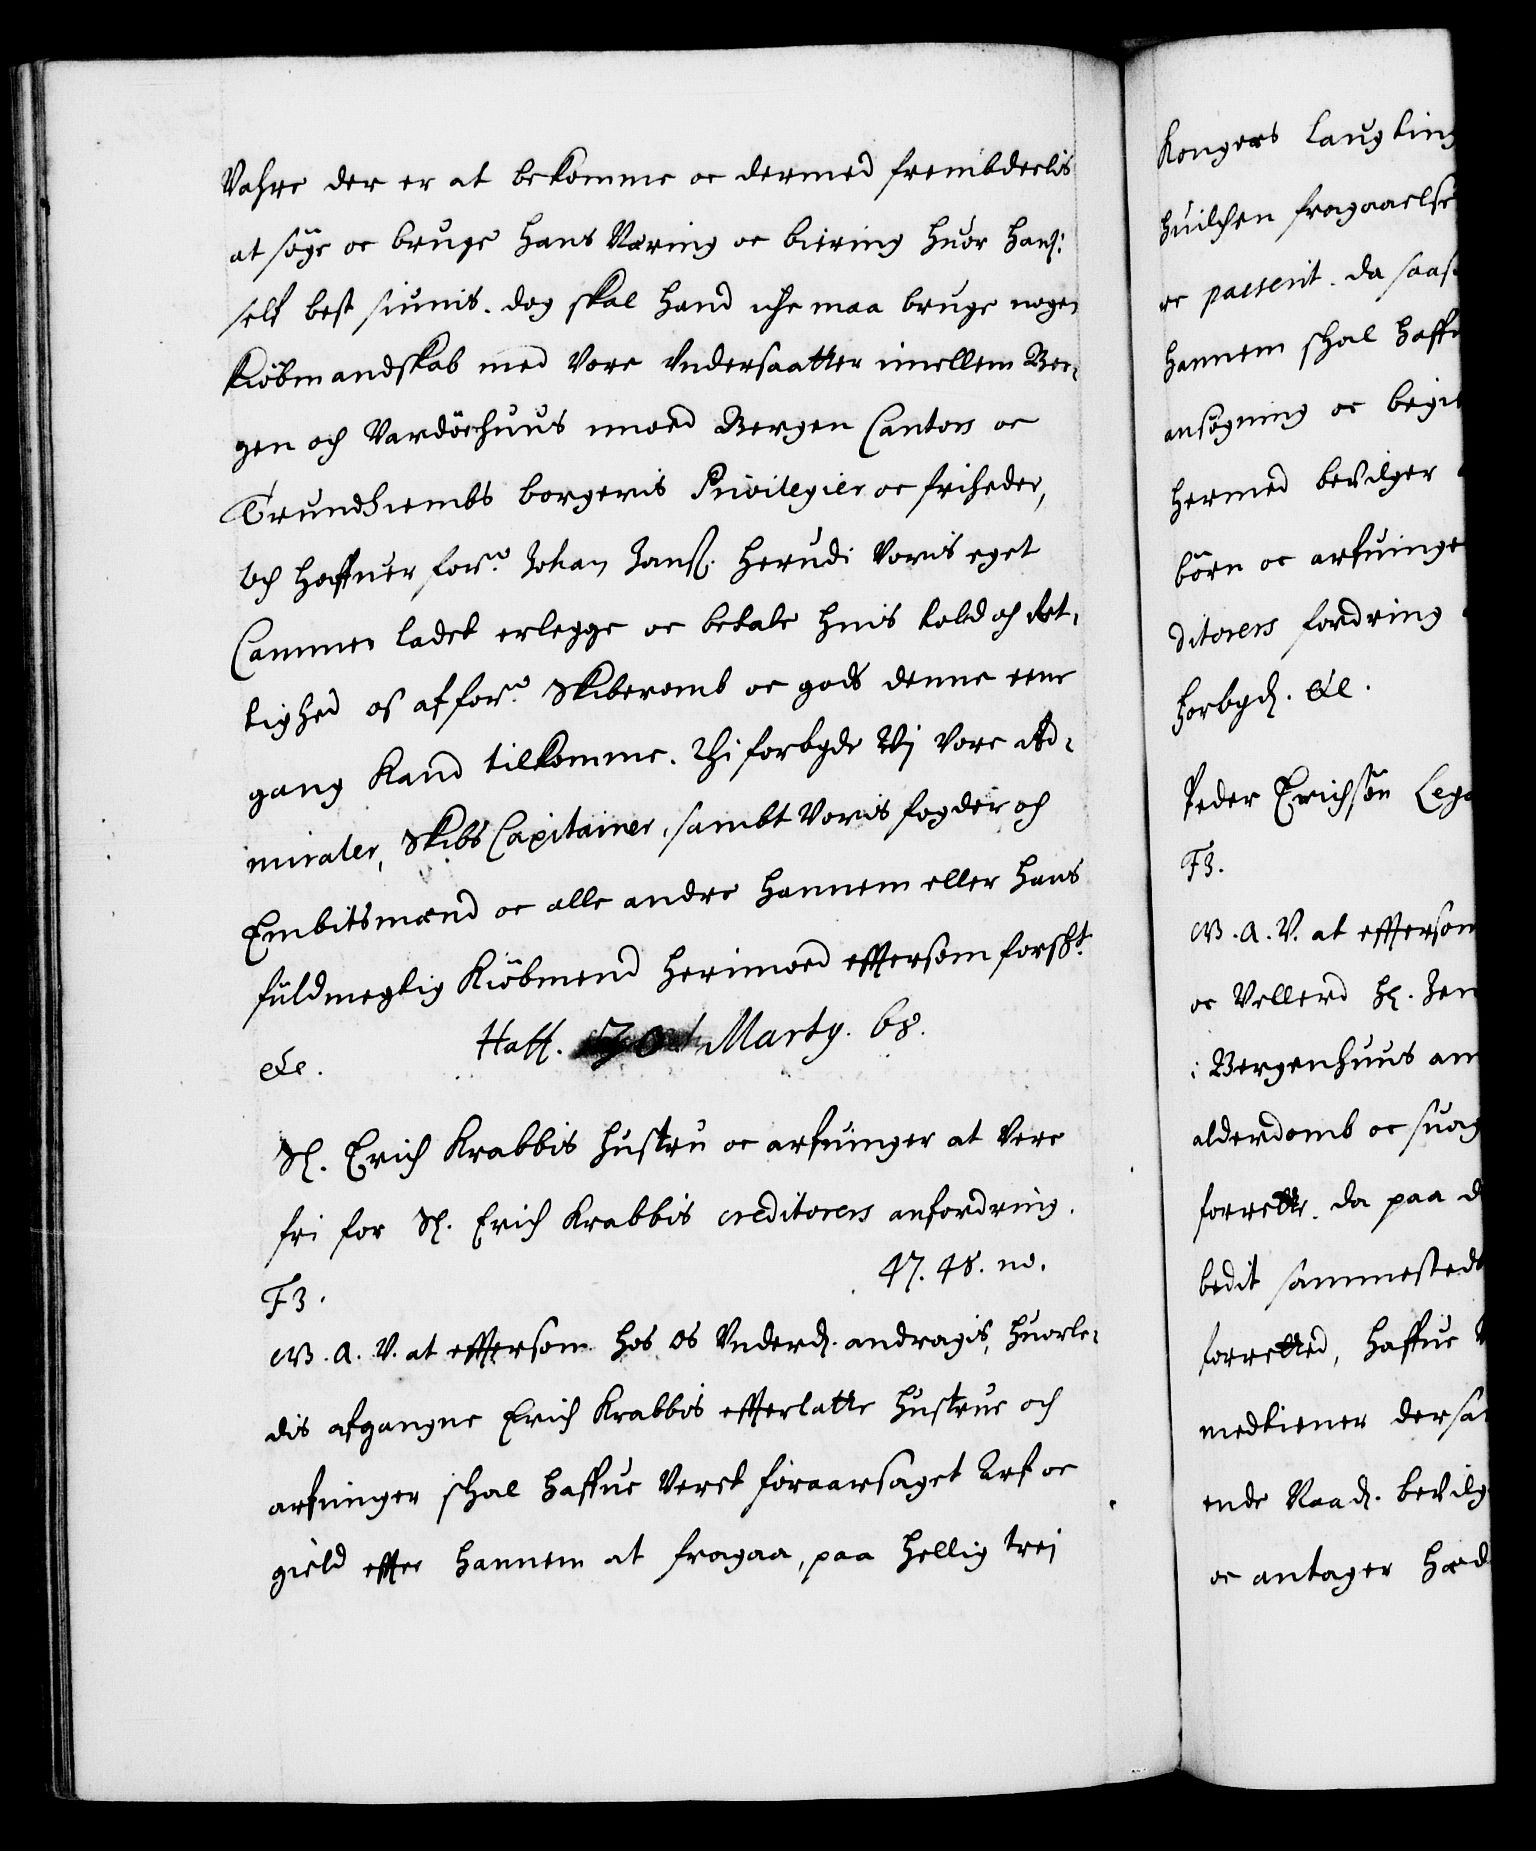 Vahre der er at bekomme oc dermed frembdeelis
at søge oc bruge hans Næring oc biering huor hand
self best siunis. dog skal hand iche maa bruge nogen
Kiøbmandskab med Vore Undersaatter imellem Ber-
gen och Vardøehuus imoed Bergen Cantors oc
Trundhiembs borgeris Privilegier oc friheder,
Och haffuer forne Johan Janss. herudi Voris eget
Cammer ladet erlegge oc betale huis told och Ret-
tighed os af forne Skiberomb oc gods denne eene
gang Kand tilkomme. Thi forbyde Wij Vore Ad-
miraler, Skibs Capitainer, sambt Voris fogder och
Embitsmænd oc alle andre hannem eller hans
fuldmegtig Kiøbmend herimoed effersom forscht.
&c. Haff. Marty. 68.
Sl. Erich Krabbis hustru oc arfuinger at Vere
fri for Sl. Erich Krabbis creditorers anfordring.
47. 48. no.
F3.
W. A. V. at effersom hos os Underd. andragis, huorle-
dis afgangne Erich Krabbis efferlatte hustrue och
arfuinger schal haffue Veret foraarsaget Arf oc
gield effter hannem at fragaa, paa hellig trej
Kongers laugting
huilchen fragaaelse
er passerit. da saas
hannem schal haffu
ansøgning oc begie
hermed bevilger
børn oc arfuinge
ditorers fordring
Forbyd. &c.
Peder Erichsøn Lega
F3.
W. A. V. at effersom
oc Vellerd Hr. Jen
i Bergenhuus am
alderdomb oc suag
forrette. da paa d
bedit sammestedt
forretted, haffue
medtiener dersa
ende Naad. bevilg
oc antager hæd